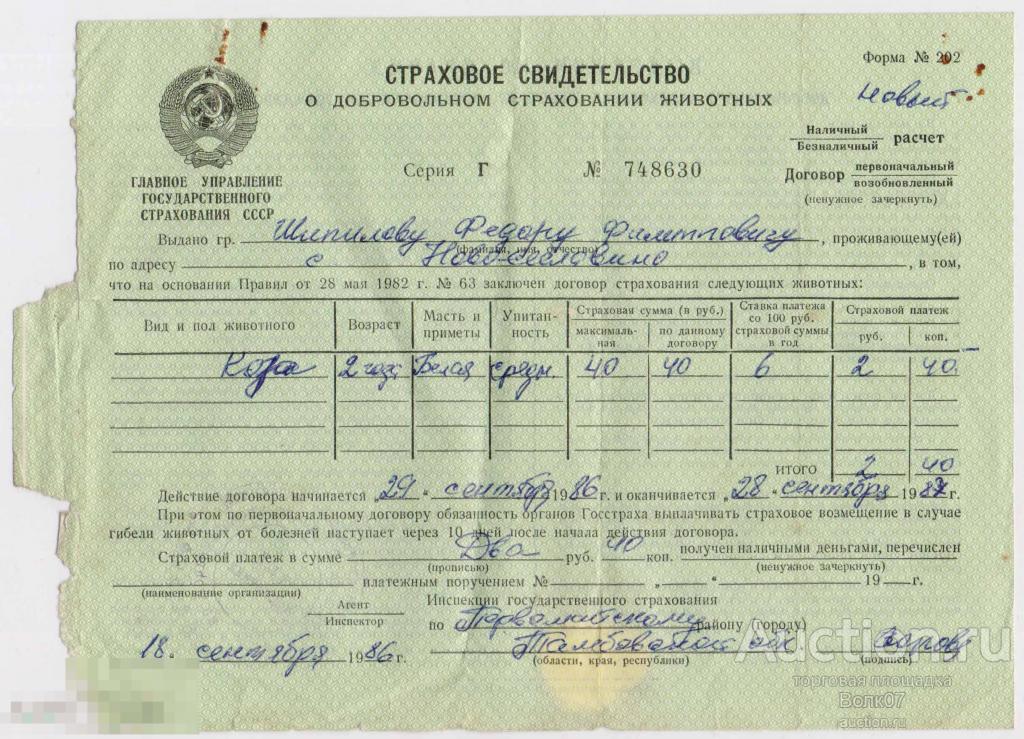 Форма № 202
СТРАХОВОЕ СВИДЕТЕЛЬСТВО
О ДОБРОВОЛЬНОМ СТРАХОВАНИИ ЖИВОТНЫХ
Новый
Наличный
Безналичный расчет
Серия Г № 748630
Договор первоначальный
возобновленный
(ненужное зачеркнуть)
ГЛАВНОЕ УПРАВЛЕНИЕ
ГОСУДАРСТВЕННОГО
СТРАХОВАНИЯ СССР
Выдано гр. Шипилову Федору Филипповичу, проживающему(ей)
(фамилия, имя, отчество)
по адресу с Новосеславино, в том,
что на основании Правил от 28 мая 1982 г. № 63 заключен договор страхования следующих животных:
Вид и пол животного Возраст Масть и приметы Упитанность Страховая сумма (в руб.) Ставка платежа со 100 руб. страховой суммы в год Страховой платеж
максимальная по данному договору руб. коп.
Коза 2 года Белая средн. 40 40 6 2 40
ИТОГО 2 40
Действие договора начинается „29“ сентября 1986 г. и оканчивается „28“ сентября 1987 г.
При этом по первоначальному договору обязанность органов Госстраха выплачивать страховое возмещение в случае
гибели животных от болезней наступает через 10 дней после начала действия договора.
Страховой платеж в сумме Два руб. 40 коп. получен наличными деньгами, перечислен
(прописью) (ненужное зачеркнуть)
платежным поручением № „ “ 19 г.
(наименование организации)
Агент
Инспектор
Инспекции государственного страхования
по Первомайскому району (городу)
18 сентября 1986 г. Тамбовской обл
(области, края, республики) (подпись)
Auction.ru
торговая площадка
Волк07
auction.ru